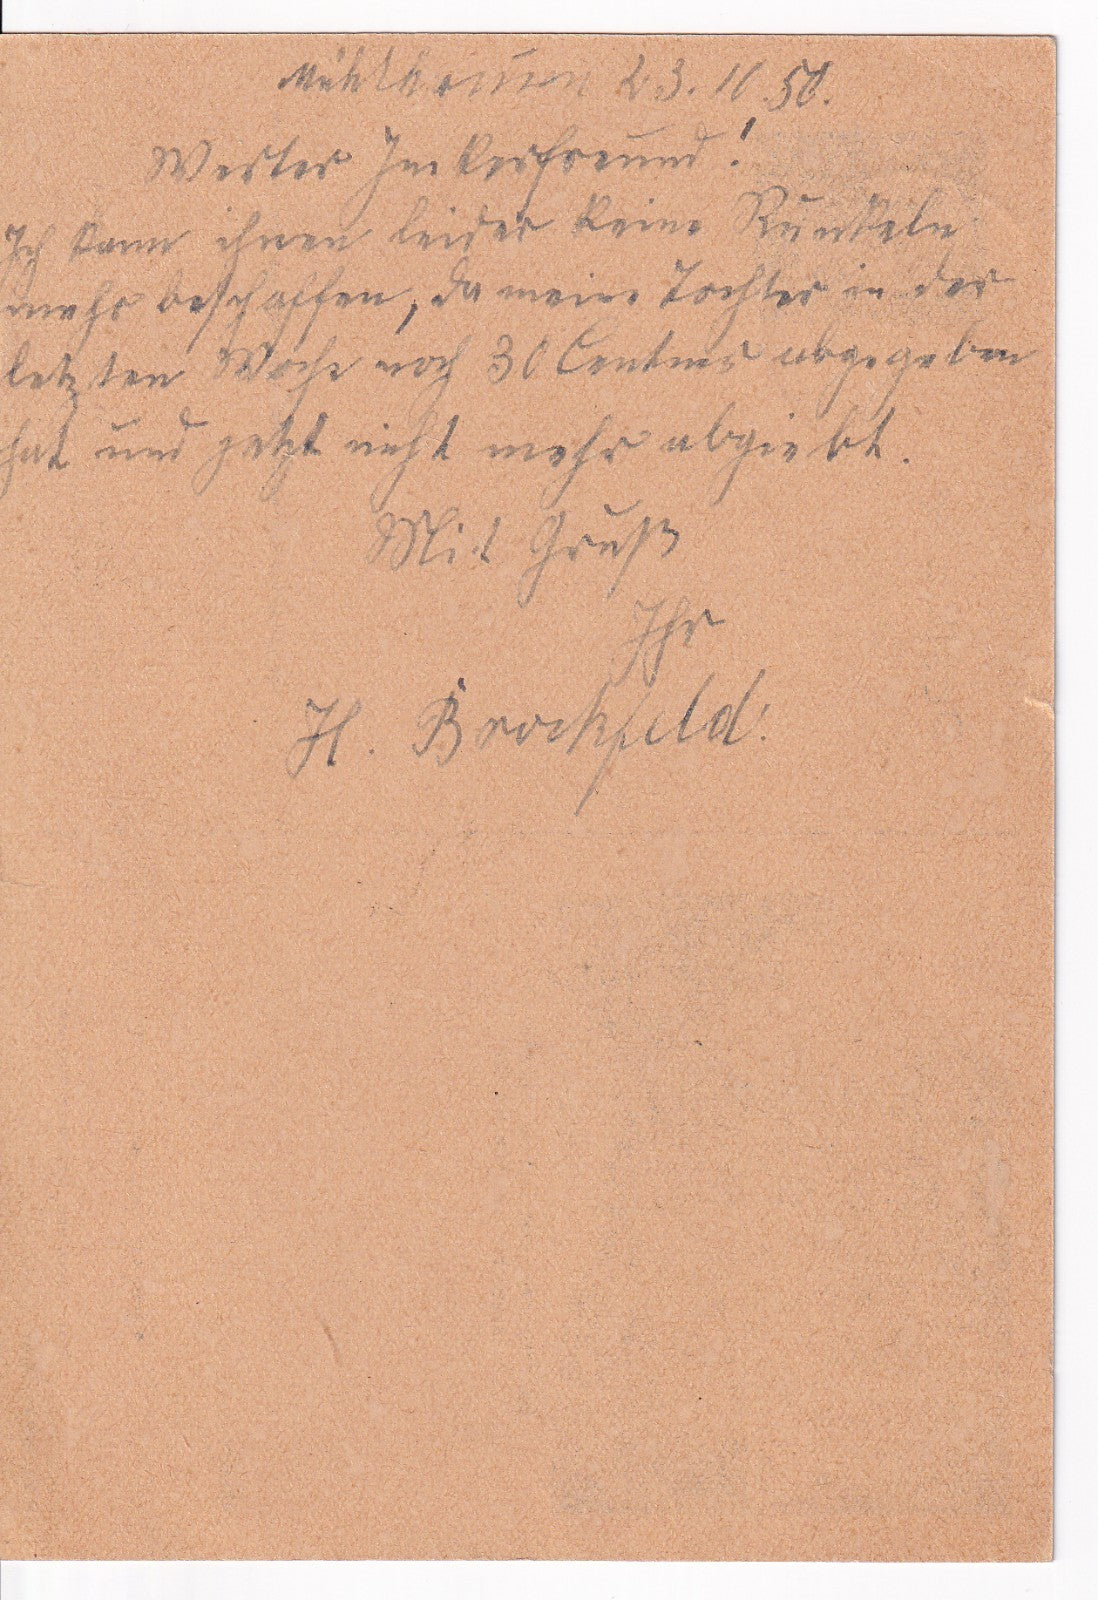 23. 11. 50.
Werter Imkerfreund!
Ich kann ihnen leider keine Runkeln
mehr beschaffen, da meine Tochter in der
letzten Woche noch 30 Centner abgegeben
hat und jetzt nicht mehr abgiebt.
Mit Gruß
Ihr
H. Brockfeld.